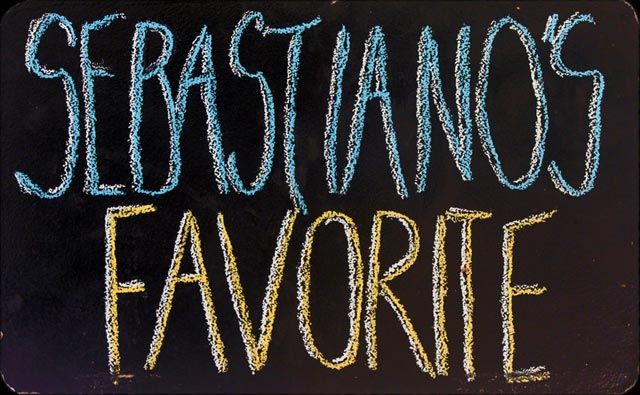 SEBASTIANO'S
FAVORITE